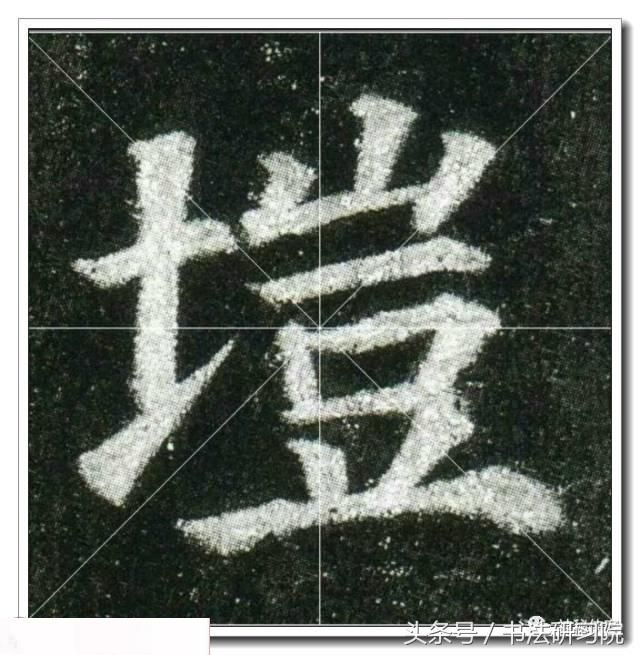 塏
头条号 / 书法研习院